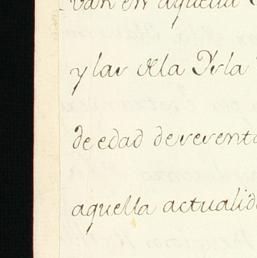 van en aquella
y las de la Isla
de edad de sesenta
aquella actualid